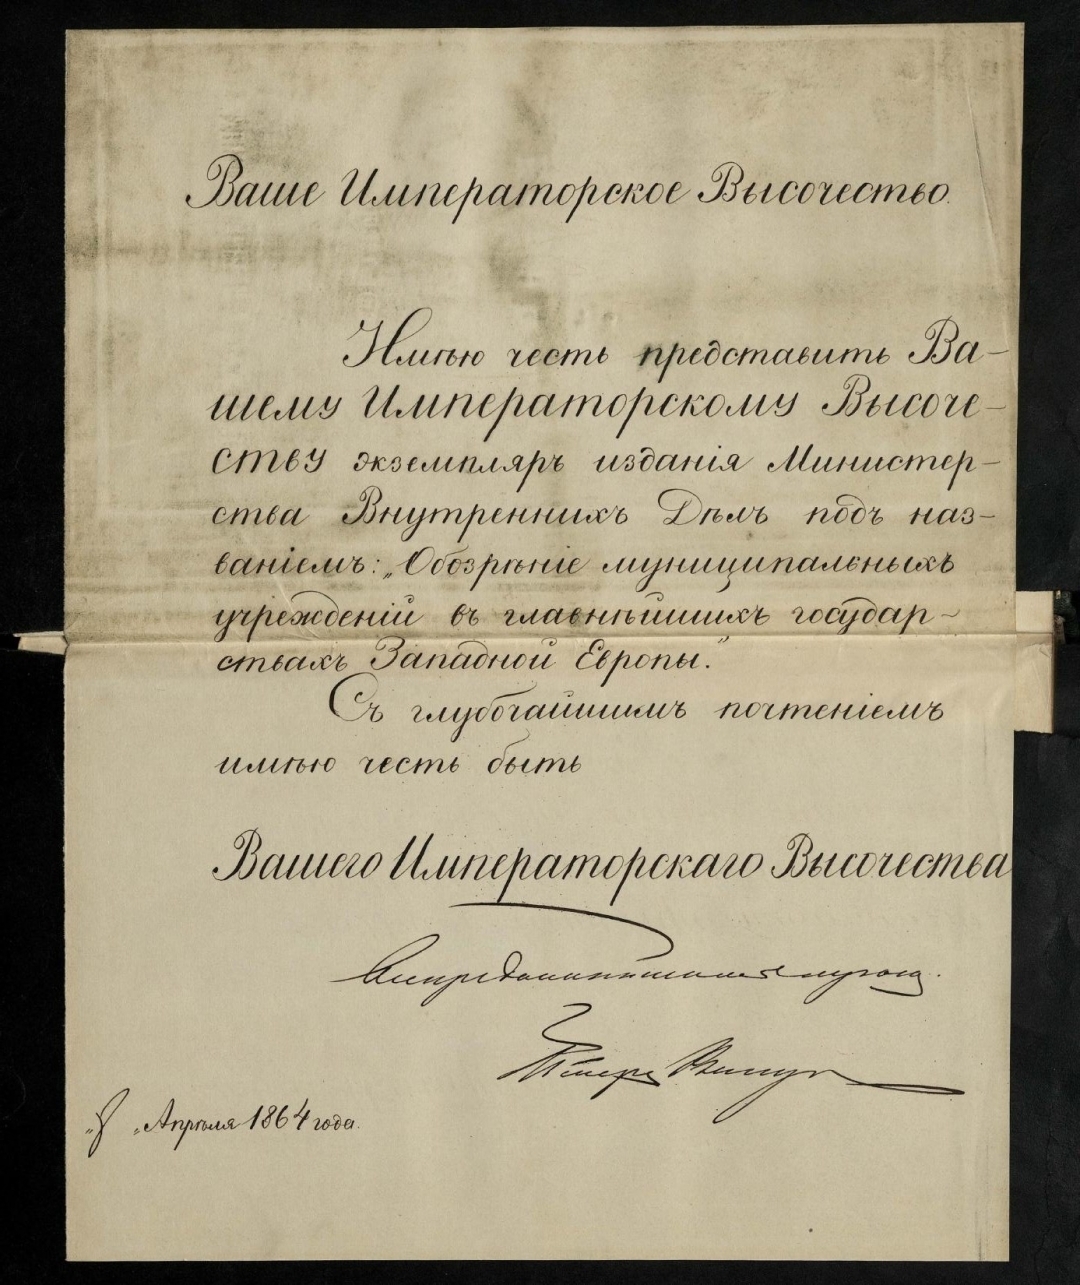 Ваше Императорское Высочество.
Имѣю честь представить Ва-
шему Императорскому Высоче-
ству экземпляръ изданія Министер-
ства Внутреннихъ Дѣлъ подъ наз-
ваніемъ: „Обозрѣніе муниципальныхъ
учрежденій въ главнѣйшихъ государ-
ствахъ Западной Европы."
Съ глубочайшимъ почтеніемъ
имѣю честь быть
Вашего Императорскаго Высочества
слуга.
„8" Апрѣля 1864 года.